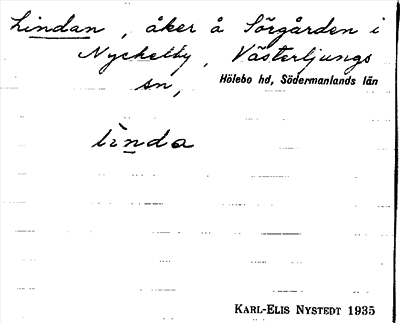 Lindan, åker å Sörgården i
Nyckelby, Västerljungs
sn, Hölebo hd, Södermanlands län
lìnda
KARL-ELIS NYSTEDT 1935